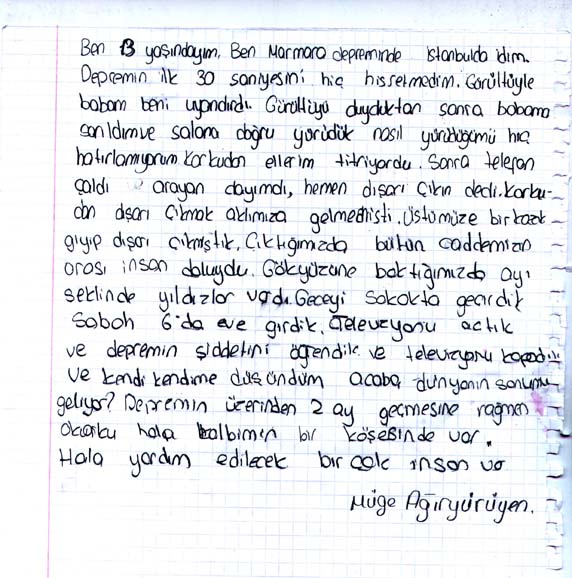 Ben 13 yaşındayım. Ben Marmara depreminde İstanbulda idim.
Depremin ilk 30 saniyesini hiç hissetmedim. Gürültüyle
babam beni uyandırdı. Gürültüyü duyduktan sonra babama
sarıldım ve salona doğru yürüdük nasıl yürüdüğümü hiç
hatırlamıyorum korkudan ellerim titriyordu. Sonra telefon
çaldı arayan dayımdı, hemen dışarı çıkın dedi. Korku-
dan dışarı çıkmak aklımıza gelmemişti. Üstümüze bir kazak
giyip dışarı çıkmıştık. Çıktığımızda bütün caddemizin
orası insan doluydu. Gökyüzüne baktığımızda ayı
şeklinde yıldızlar vardı. Geceyi sokakta geçirdik
Sabah 6'da eve girdik. Televizyonu açtık
ve depremin şiddetini öğrendik ve televizyonu kapadık
ve kendi kendime düşündüm acaba dünyanın sonumu
geliyor? Depremin üzerinden 2 ay geçmesine rağmen
o korku hala kalbimin bir köşesinde var.
Hala yardım edilecek bir çok insan var
Müge Ağıryürüyen.